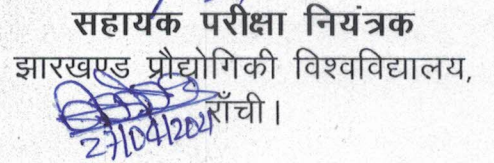 सहायक परीक्षा नियंत्रक
झारखण्ड प्रौद्योगिकी विश्वविद्यालय,
राँची।
27/04/2021